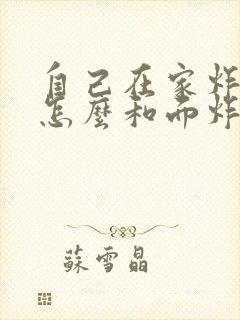 自己在家炸
怎麼和而炸
蘇雪晶